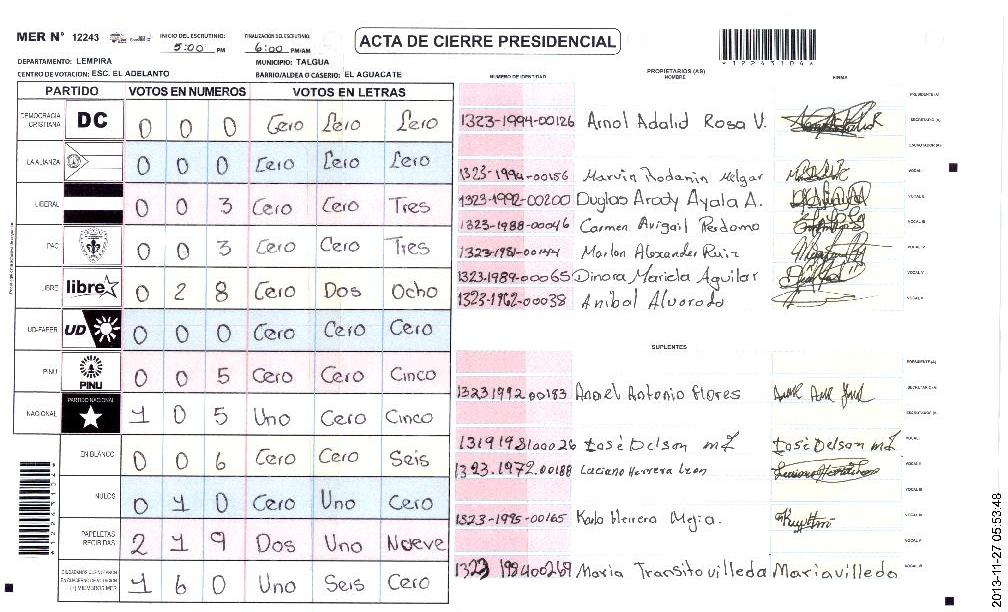 MER N° 12243 INICIO DEL ESCRUTINIO: 5:00 PM FINALIZACION DEL ESCRUTINIO: 6:00 PM/AM ACTA DE CIERRE PRESIDENCIAL
DEPARTAMENTO: LEMPIRA MUNICIPIO: TALGUA
CENTRO DE VOTACION: ESC. EL ADELANTO BARRIO/ALDEA O CASERIO: EL AGUACATE
PARTIDO VOTOS EN NUMEROS VOTOS EN LETRAS
DEMOCRACIA CRISTIANA DC 0 0 0 Cero Cero Cero
LA ALIANZA 0 0 0 Cero Cero Cero
LIBERAL 0 0 3 Cero Cero Tres
PAC 0 0 3 Cero Cero Tres
LIBRE libre 0 2 8 Cero Dos Ocho
UD-FAPER UD 0 0 0 Cero Cero Cero
PINU PINU 0 0 5 Cero Cero Cinco
NACIONAL PARTIDO NACIONAL 1 0 5 Uno Cero Cinco
EN BLANCO 0 0 6 Cero Cero Seis
NULOS 0 1 0 Cero Uno Cero
PAPELETAS RECIBIDAS 2 1 9 Dos Uno Nueve
CIUDADANOS QUE VOTARON EN CUADERNO DE VOTACION (+) MIEMBROS MER 1 6 0 Uno Seis Cero
NUMERO DE IDENTIDAD PROPIETARIOS (AS) NOMBRE FIRMA
PRESIDENTE (A)
1323-1994-00126 Arnol Adalid Rosa V. SECRETARIO (A)
ESCRUTADOR (A)
1323-1994-00156 Marvin Rodanin Melgar VOCAL I
1323-1992-00200 Duglas Arody Ayala A. VOCAL II
1323-1988-00046 Carmen Avigail Perdomo VOCAL III
1323-1981-00144 Marlon Alexander Ruiz VOCAL IV
1323-1989-00065 Dinora Mariela Aguilar VOCAL V
1323-1962-00038 Anibal Alvorado
SUPLENTES
PRESIDENTE (A)
1323 1992 00183 Angel Antonio Flores SECRETARIO (A)
ESCRUTADOR (A)
1319 1981 00026 José Delson José Delson VOCAL I
1323.1972.00188 Luciano Herrera Leon VOCAL II
VOCAL III
1323-1995-00165 Karla Herrera Mejia. VOCAL IV
VOCAL V
1323 1984 00269 Maria Transito villeda Maria villeda VOCAL VI
2013-11-27 05:53:48